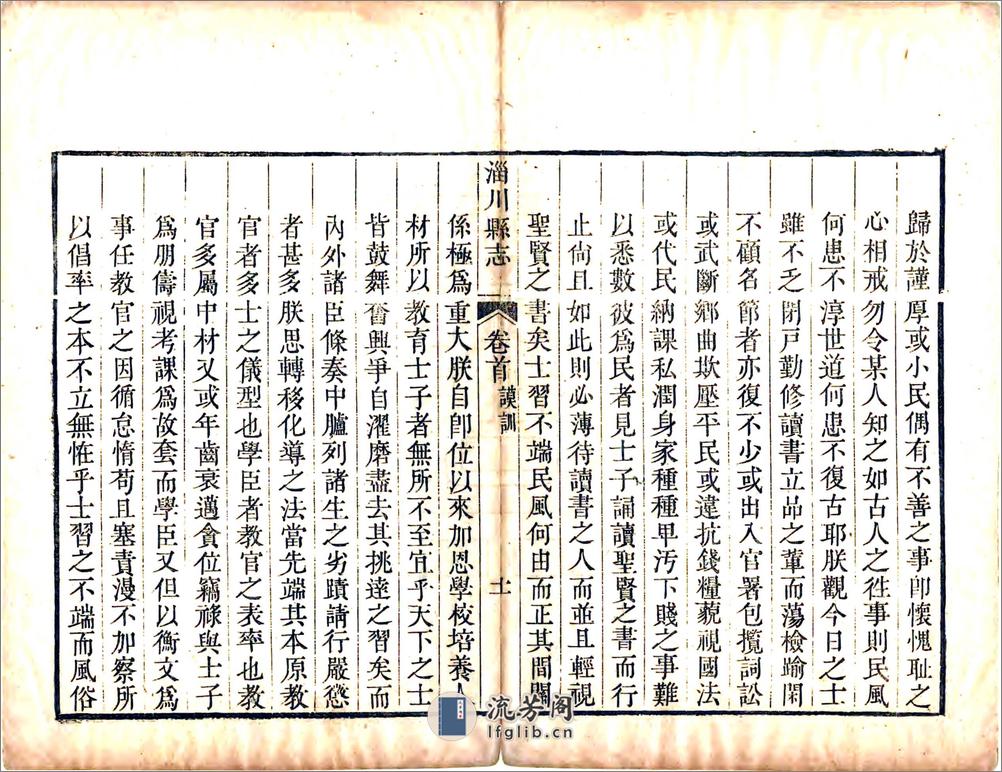 歸於謹厚或小民偶有不善之事卽懷愧耻之
心相戒勿令某人知之如古人之徃事則民風
何患不淳世道何患不復古耶朕觀今日之士
雖不乏閉戸勤修讀書立品之軰而蕩檢踰閑
不顧名節者亦復不少或出入官署包攬詞訟
或武斷鄉曲欺壓平民或違抗錢糧藐視國法
或代民納課私潤身家種種卑汚下賤之事難
以悉數彼爲民者見士子誦讀聖賢之書而行
止尙且如此則必薄待讀書之人而並且輕視
聖賢之書矣士習不端民風何由而正其間關
淄川縣志
卷首
謨訓
十一
係極爲重大朕自卽位以來加恩學校培養人
材所以教育士子者無所不至宜乎天下之士
皆鼓舞奮興爭自濯磨盡去其挑達之習矣而
內外諸臣條奏中臚列諸生之劣蹟請行嚴懲
者甚多朕思轉移化導之法當先端其本原教
官者多士之儀型也學臣者教官之表率也教
官多屬中材又或年齒衰邁貪位竊祿與士子
爲朋儔視考課爲故套而學臣又但以衡文爲
事任教官之因循怠惰苟且塞責漫不加察所
以倡率之本不立無恠乎士習之不端而風俗
流芳阁
lfglib.cn